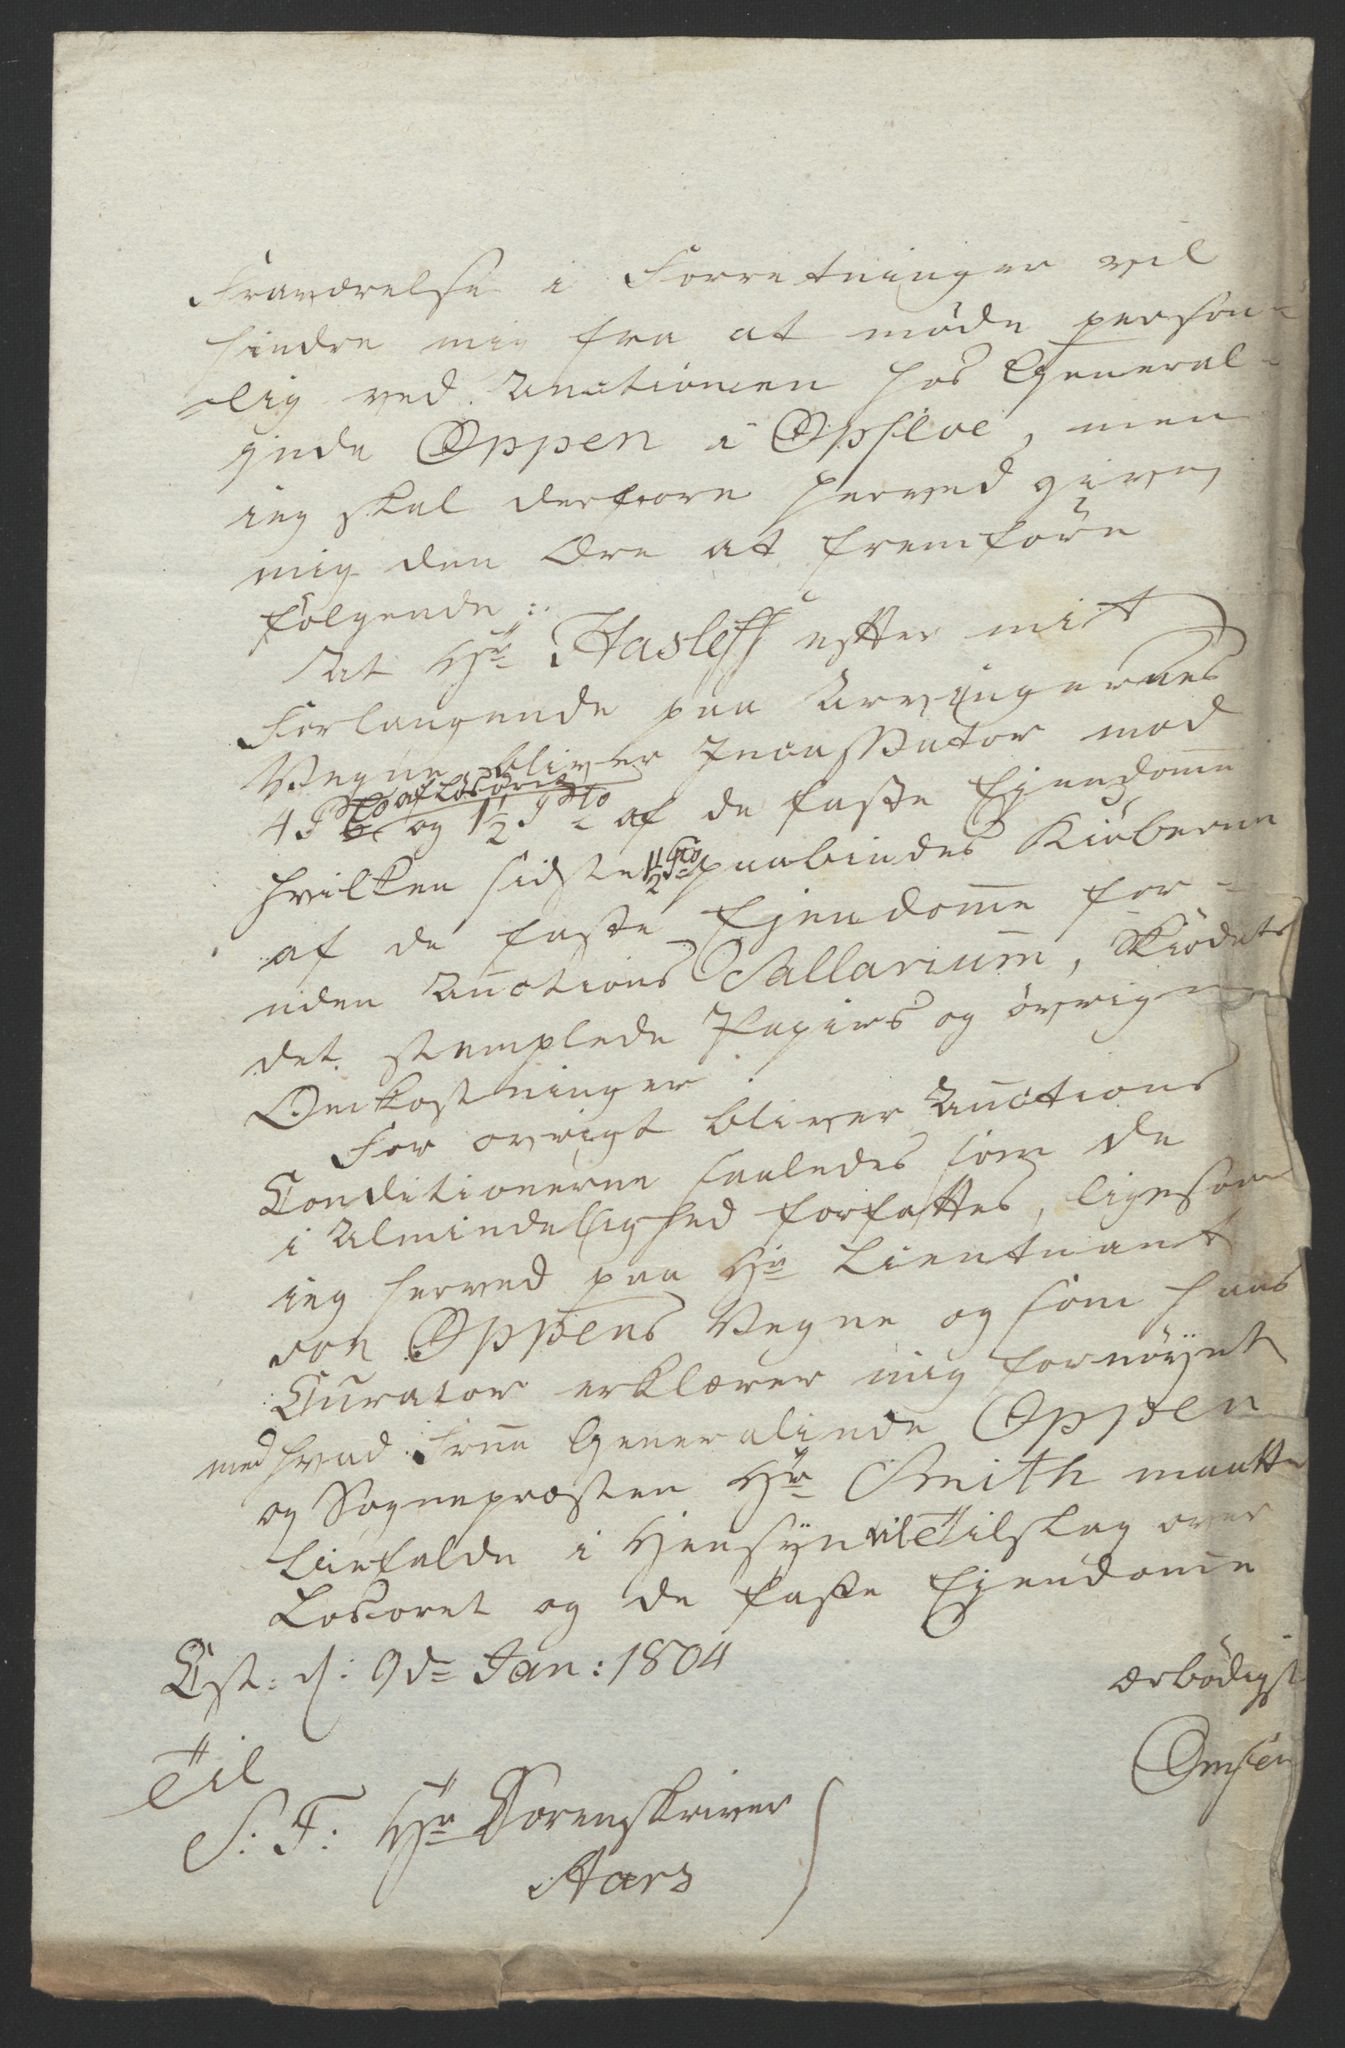 Fraværelse i Forretninger vil
hindre mig fra at møde person-
-lig ved Auctionen hos General-
inde Oppen i Opsloe, men
ieg skal derfore herved give
mig den Ære at fremføre
følgende:
At Hr Hasleff efter mit
Forlangende paa Arvingernes
Vegne bliver Incassator mod
4 P Cto af Løsøre og 1½ P Cto af de faste Ejendomme
hvilken sidste 1½ P Cto paabindes Kiøberne
af de faste Ejendomme for-
uden Auctions Sallarium, Skiødets
det stemplede Papiirs og øvrige
Omkostninger.
For øvrigt bliver Auctions
Conditionerne saaledes som de
i Almindelighed forfattes, ligesom
ieg herved paa Hr Lieutnant
von Oppens Vegne og som hans
Curator erklærer mig fornøyet
med hvad Frue Generalinde Oppen
og Sognepræsten Hr Smith maatte
i Hensyn til Tilslag over
Løsøret og de faste Ejendomme
Cst: d: 9de Jan: 1804
ærbødigst
Omsen
Til
S: T: Hr Sorenskriver
Aars